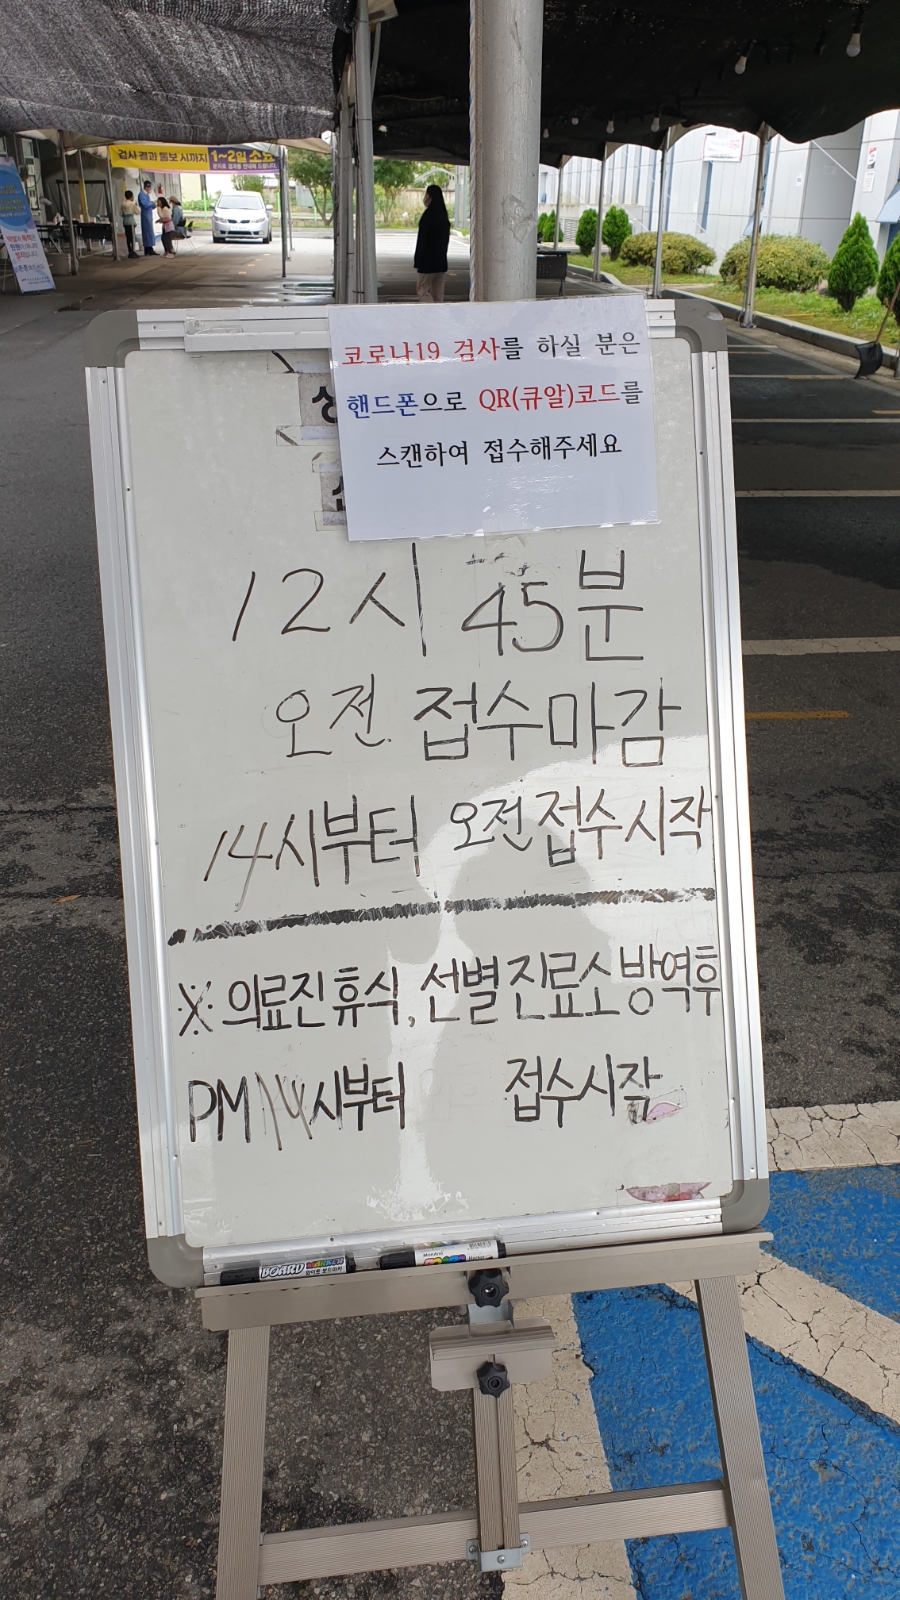 검사결과 통보 시까지 1~2일 소요
코로나19 검사를 하실 분은
핸드폰으로 QR(큐알)코드를
스캔하여 접수해주세요
12시 45분
오전 접수마감
14시부터 오전접수시작
※ 의료진휴식, 선별진료소방역후
PM 14시부터 접수시작
BOARD MARKER